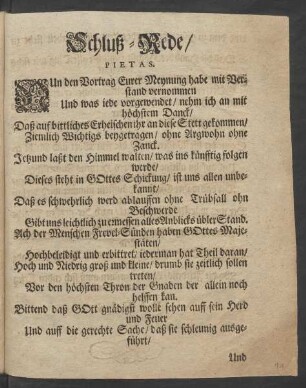 Schluß-Rede/
PIETAS.
NUn den Vortrag Eurer Meynung habe mit Ver-
stand vernommen
Und was iede vorgewendet/ nehm ich an mit
höchstem Danck/
Daß auf bittliches Erheischen ihr an diese Stett gekommen/
Ziemlich Wichtigs beygetragen/ ohne Argwohn ohne
Zanck.
Jetzund laßt den Himmel walten/ was ins künfftig folgen
werde/
Dieses steht in GOttes Schickung/ ist uns allen unbe-
kannt/
Daß es schwehrlich werd ablauffen ohne Trübsall ohn
Beschwerde
Gibt uns leichtlich zu ermessen alles Anblicks übler Stand.
Ach der Menschen Frevel-Sünden haben GOttes Maje-
stäten/
Hochbeleidigt und erbittret/ iederman hat Theil daran/
Hoch und Niedrig groß und kleine/ drumb sie zeitlich sollen
tretten/
Vor den höchsten Thron der Gnaden der allein noch
helffen kan.
Bittend daß GOtt gnädigst wollt sehen auff sein Herd
und Feuer
Und auff die gerechte Sache/ daß sie schleunig ausge-
führt/
Und